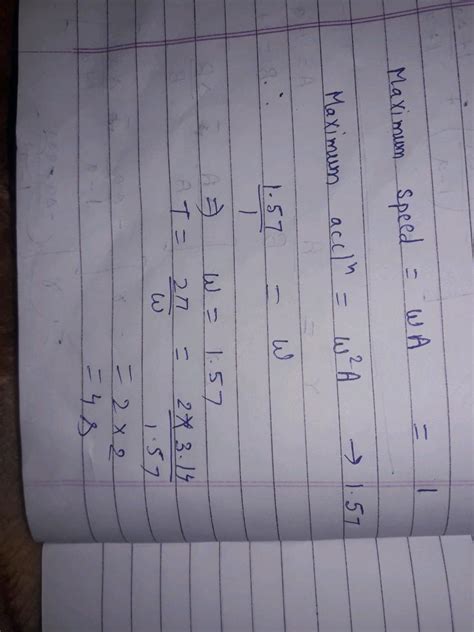 Maximum speed = ωA = 1
Maximum accⁿ = ω²A → 1.57
∴ 1.57/1 = ω
⇒ ω = 1.57
T = 2π/ω = 2*3.14/1.57
= 2*2
= 4s